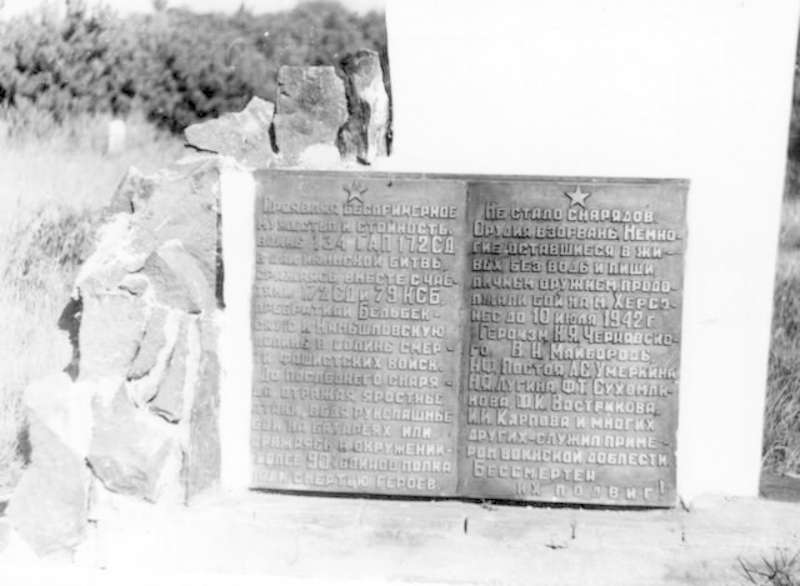 Проявляя беспримерное
мужество и стойкость,
воины 134 ГАП 172 СД
в дни июньской битвы,
сражаясь вместе с час-
тями 172 СД и 79 КСБ,
превратили Бельбек-
скую и Камышловскую
долины в долины смер-
ти фашистских войск.
До последнего снаря-
да отражая яростные
атаки, ведя рукопашные
бои на батареях или
сражаясь в окружении
более 90 воинов полка
смертью героев.
Не стало снарядов.
Орудия взорваны. Немно-
гие оставшиеся в жи-
вых без воды и пищи
личным оружием продо-
лжали бой на м. Херсо-
нес до 10 июля 1942 г.
Героизм Чернявско-
го, В.Н. Майбороды,
Н.Ф. Постоя, А.С. Умеркина,
Лугина, Ф.Т. Сухомли-
нова, Ф.К. Вострикова,
И.И. Карпова и многих
других-служил приме-
ром воинской доблести.
Бессмертен
их подвиг!